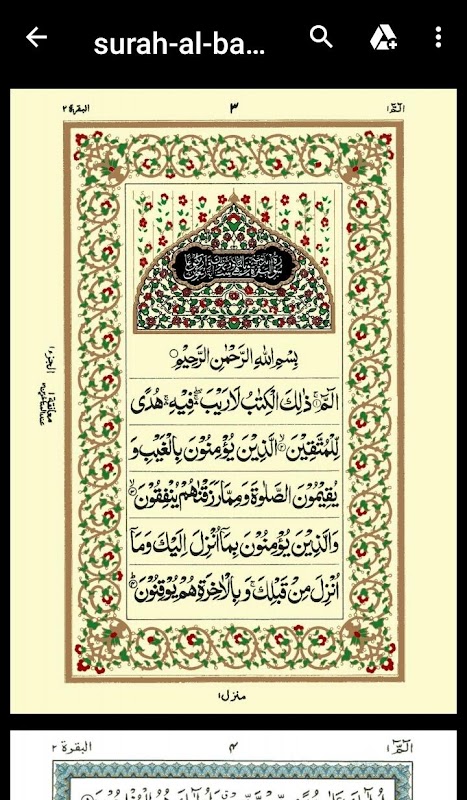 surah-al-ba...
الٓمّٓ ١
٣
البقرة ٢
بِسْمِ اللهِ الرَّحْمٰنِ الرَّحِيْمِ
الٓمّٓ ۚ۝۱ ذٰلِكَ الْكِتٰبُ لَا رَيْبَ ۛۖۚ فِيْهِ ۛۚ هُدًى
لِّلْمُتَّقِيْنَ ۙ۝۲ الَّذِيْنَ يُؤْمِنُوْنَ بِالْغَيْبِ وَ
يُقِيْمُوْنَ الصَّلٰوةَ وَمِمَّا رَزَقْنٰهُمْ يُنْفِقُوْنَ ۙ۝۳
وَالَّذِيْنَ يُؤْمِنُوْنَ بِمَاۤ اُنْزِلَ اِلَيْكَ وَمَاۤ
اُنْزِلَ مِنْ قَبْلِكَ ۚ وَ بِالْاٰخِرَةِ هُمْ يُوْقِنُوْنَ ۝۴
معانقة ١
الجزء ١
منزل ١
الٓمّٓ ١
٤
البقرة ٢